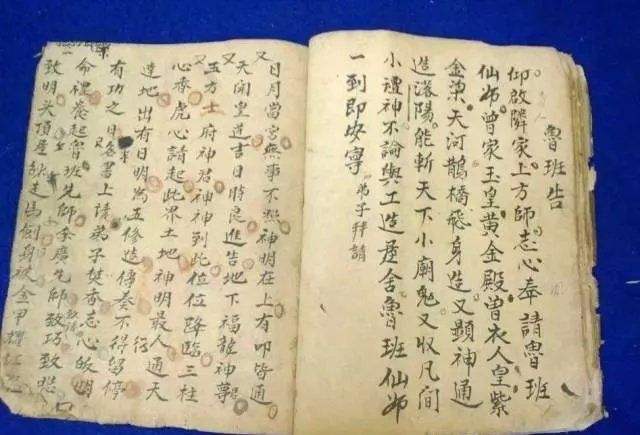 魯班告
仰啟隣家上方師志心奉請魯班
仙師曾家玉皇黃金殿曾衣人皇紫
金梁天河鵲橋飛身造又顕神通
造瀋陽能斬天下小廟鬼又收凡間
小禮神不論興工造屋舍魯班仙師
一到即安寧 弟子拜請
又日月當空無事不照神明在上有叩皆通
又天開皇道吉日時良進告地下福龍神尊
又五方土府神君神神到此位位降臨三柱
心香虔心請起此界土地神明最人通天
達地出有日明為五修造傳奏不得留停
有功之日名書上請弟子焚香志心皈明
命禮卷起魯班先師 先師致巧致
致明頭頂 走馬 身披金甲